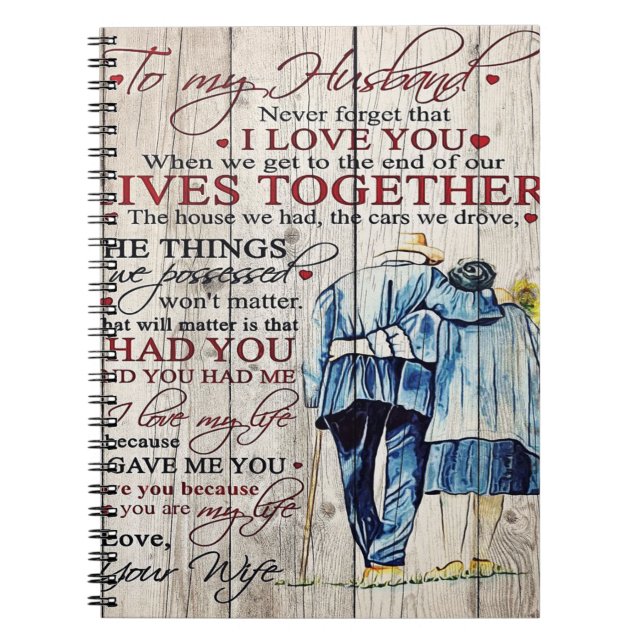 To my Husband
Never forget that
I LOVE YOU
When we get to the end of our
IVES TOGETHER
The house we had, the cars we drove,
HE THINGS
we possessed
won't matter.
hat will matter is that
HAD YOU
ND YOU HAD ME
I love my life
because
GAVE ME YOU
ve you because
you are my life
Love,
Your Wife